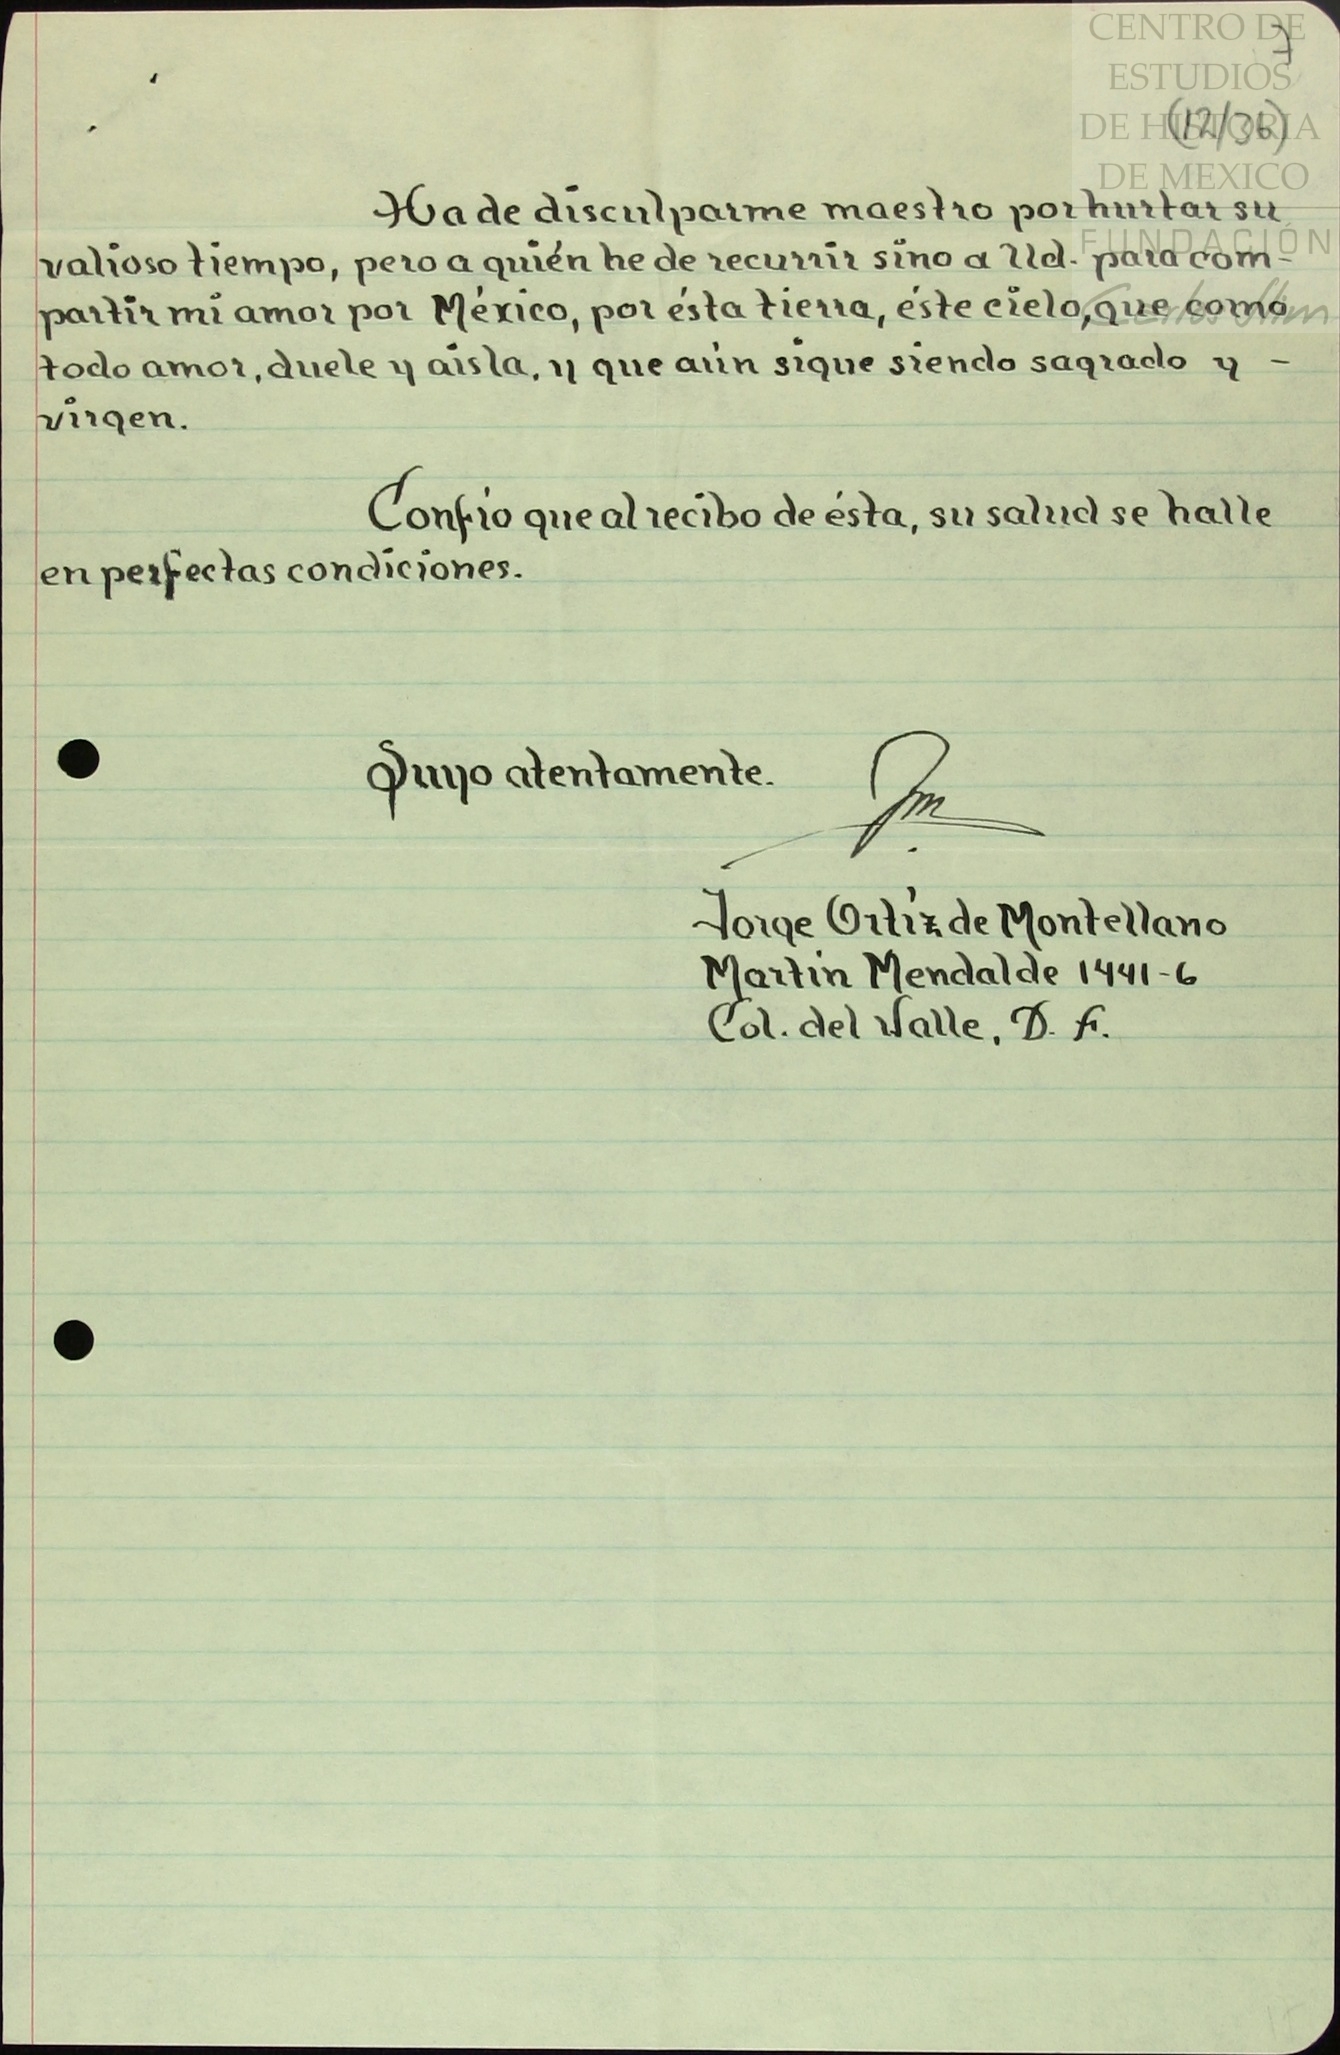 CENTRO DE
ESTUDIOS
DE HISTORIA
DE MEXICO
FUNDACIÓN
Carlos Slim
7
(12/36)
Ha de disculparme maestro por hurtar su
valioso tiempo, pero a quién he de recurrir sino a Ud. para com-
partir mi amor por México, por ésta tierra, éste cielo, que como
todo amor, duele y aisla, y que aún sigue siendo sagrado y -
virgen.
Confío que al recibo de ésta, su salud se halle
en perfectas condiciones.
Suyo atentamente.
Jorge Ortíz de Montellano
Martín Mendalde 1441-6
Col. del Valle, D. F.